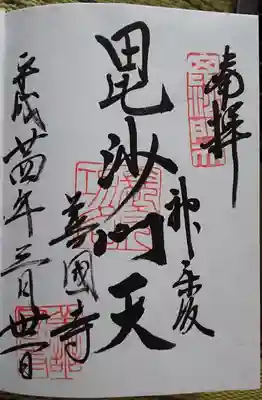 奉拝
神楽坂
毘沙門天
善國寺
平成廿四年三月卅一日